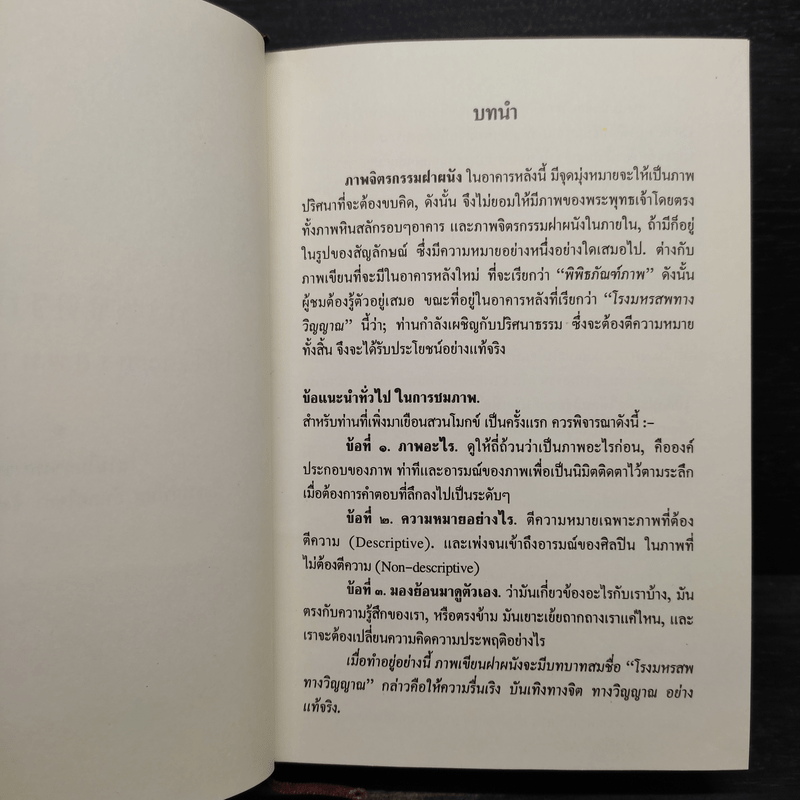 บทนำ
ภาพจิตรกรรมฝาผนัง ในอาคารหลังนี้ มีจุดมุ่งหมายจะให้เป็นภาพ
ปริศนาที่จะต้องขบคิด, ดังนั้น จึงไม่ยอมให้มีภาพของพระพุทธเจ้าโดยตรง
ทั้งภาพหินสลักรอบๆอาคาร และภาพจิตรกรรมฝาผนังในภายใน, ถ้ามีก็อยู่
ในรูปของสัญลักษณ์ ซึ่งมีความหมายอย่างหนึ่งอย่างใดเสมอไป. ต่างกับ
ภาพเขียนที่จะมีในอาคารหลังใหม่ ที่จะเรียกว่า “พิพิธภัณฑ์ภาพ” ดังนั้น
ผู้ชมต้องรู้ตัวอยู่เสมอ ขณะที่อยู่ในอาคารหลังที่เรียกว่า “โรงมหรสพทาง
วิญญาณ” นี้ว่า; ท่านกำลังเผชิญกับปริศนาธรรม ซึ่งจะต้องตีความหมาย
ทั้งสิ้น จึงจะได้รับประโยชน์อย่างแท้จริง
ข้อแนะนำทั่วไป ในการชมภาพ.
สำหรับท่านที่เพิ่งมาเยือนสวนโมกข์ เป็นครั้งแรก ควรพิจารณาดังนี้ :-
ข้อที่ ๑. ภาพอะไร. ดูให้ถี่ถ้วนว่าเป็นภาพอะไรก่อน, คือองค์
ประกอบของภาพ ท่าทีและอารมณ์ของภาพเพื่อเป็นนิมิตติดตาไว้ตามระลึก
เมื่อต้องการคำตอบที่ลึกลงไปเป็นระดับๆ
ข้อที่ ๒. ความหมายอย่างไร. ตีความหมายเฉพาะภาพที่ต้อง
ตีความ (Descriptive). และเพ่งจนเข้าถึงอารมณ์ของศิลปิน ในภาพที่
ไม่ต้องตีความ (Non-descriptive)
ข้อที่ ๓. มองย้อนมาดูตัวเอง. ว่ามันเกี่ยวข้องอะไรกับเราบ้าง, มัน
ตรงกับความรู้สึกของเรา, หรือตรงข้าม มันเยาะเย้ยถากถางเราแค่ไหน, และ
เราจะต้องเปลี่ยนความคิดความประพฤติอย่างไร
เมื่อทำอยู่อย่างนี้ ภาพเขียนฝาผนังจะมีบทบาทสมชื่อ “โรงมหรสพ
ทางวิญญาณ” กล่าวคือให้ความรื่นเริง บันเทิงทางจิต ทางวิญญาณ อย่าง
แท้จริง.